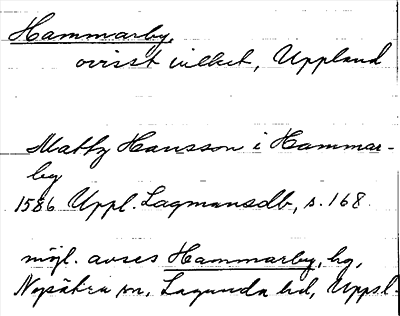 Hammarby,
ovisst vilket, Uppland
Matts Hansson i Hammar-
by
1586 Uppl. Lagmansdb, s. 168.
möjl. avses Hammarby, by,
Nysätra sn, Lagunda hd, Uppsl.